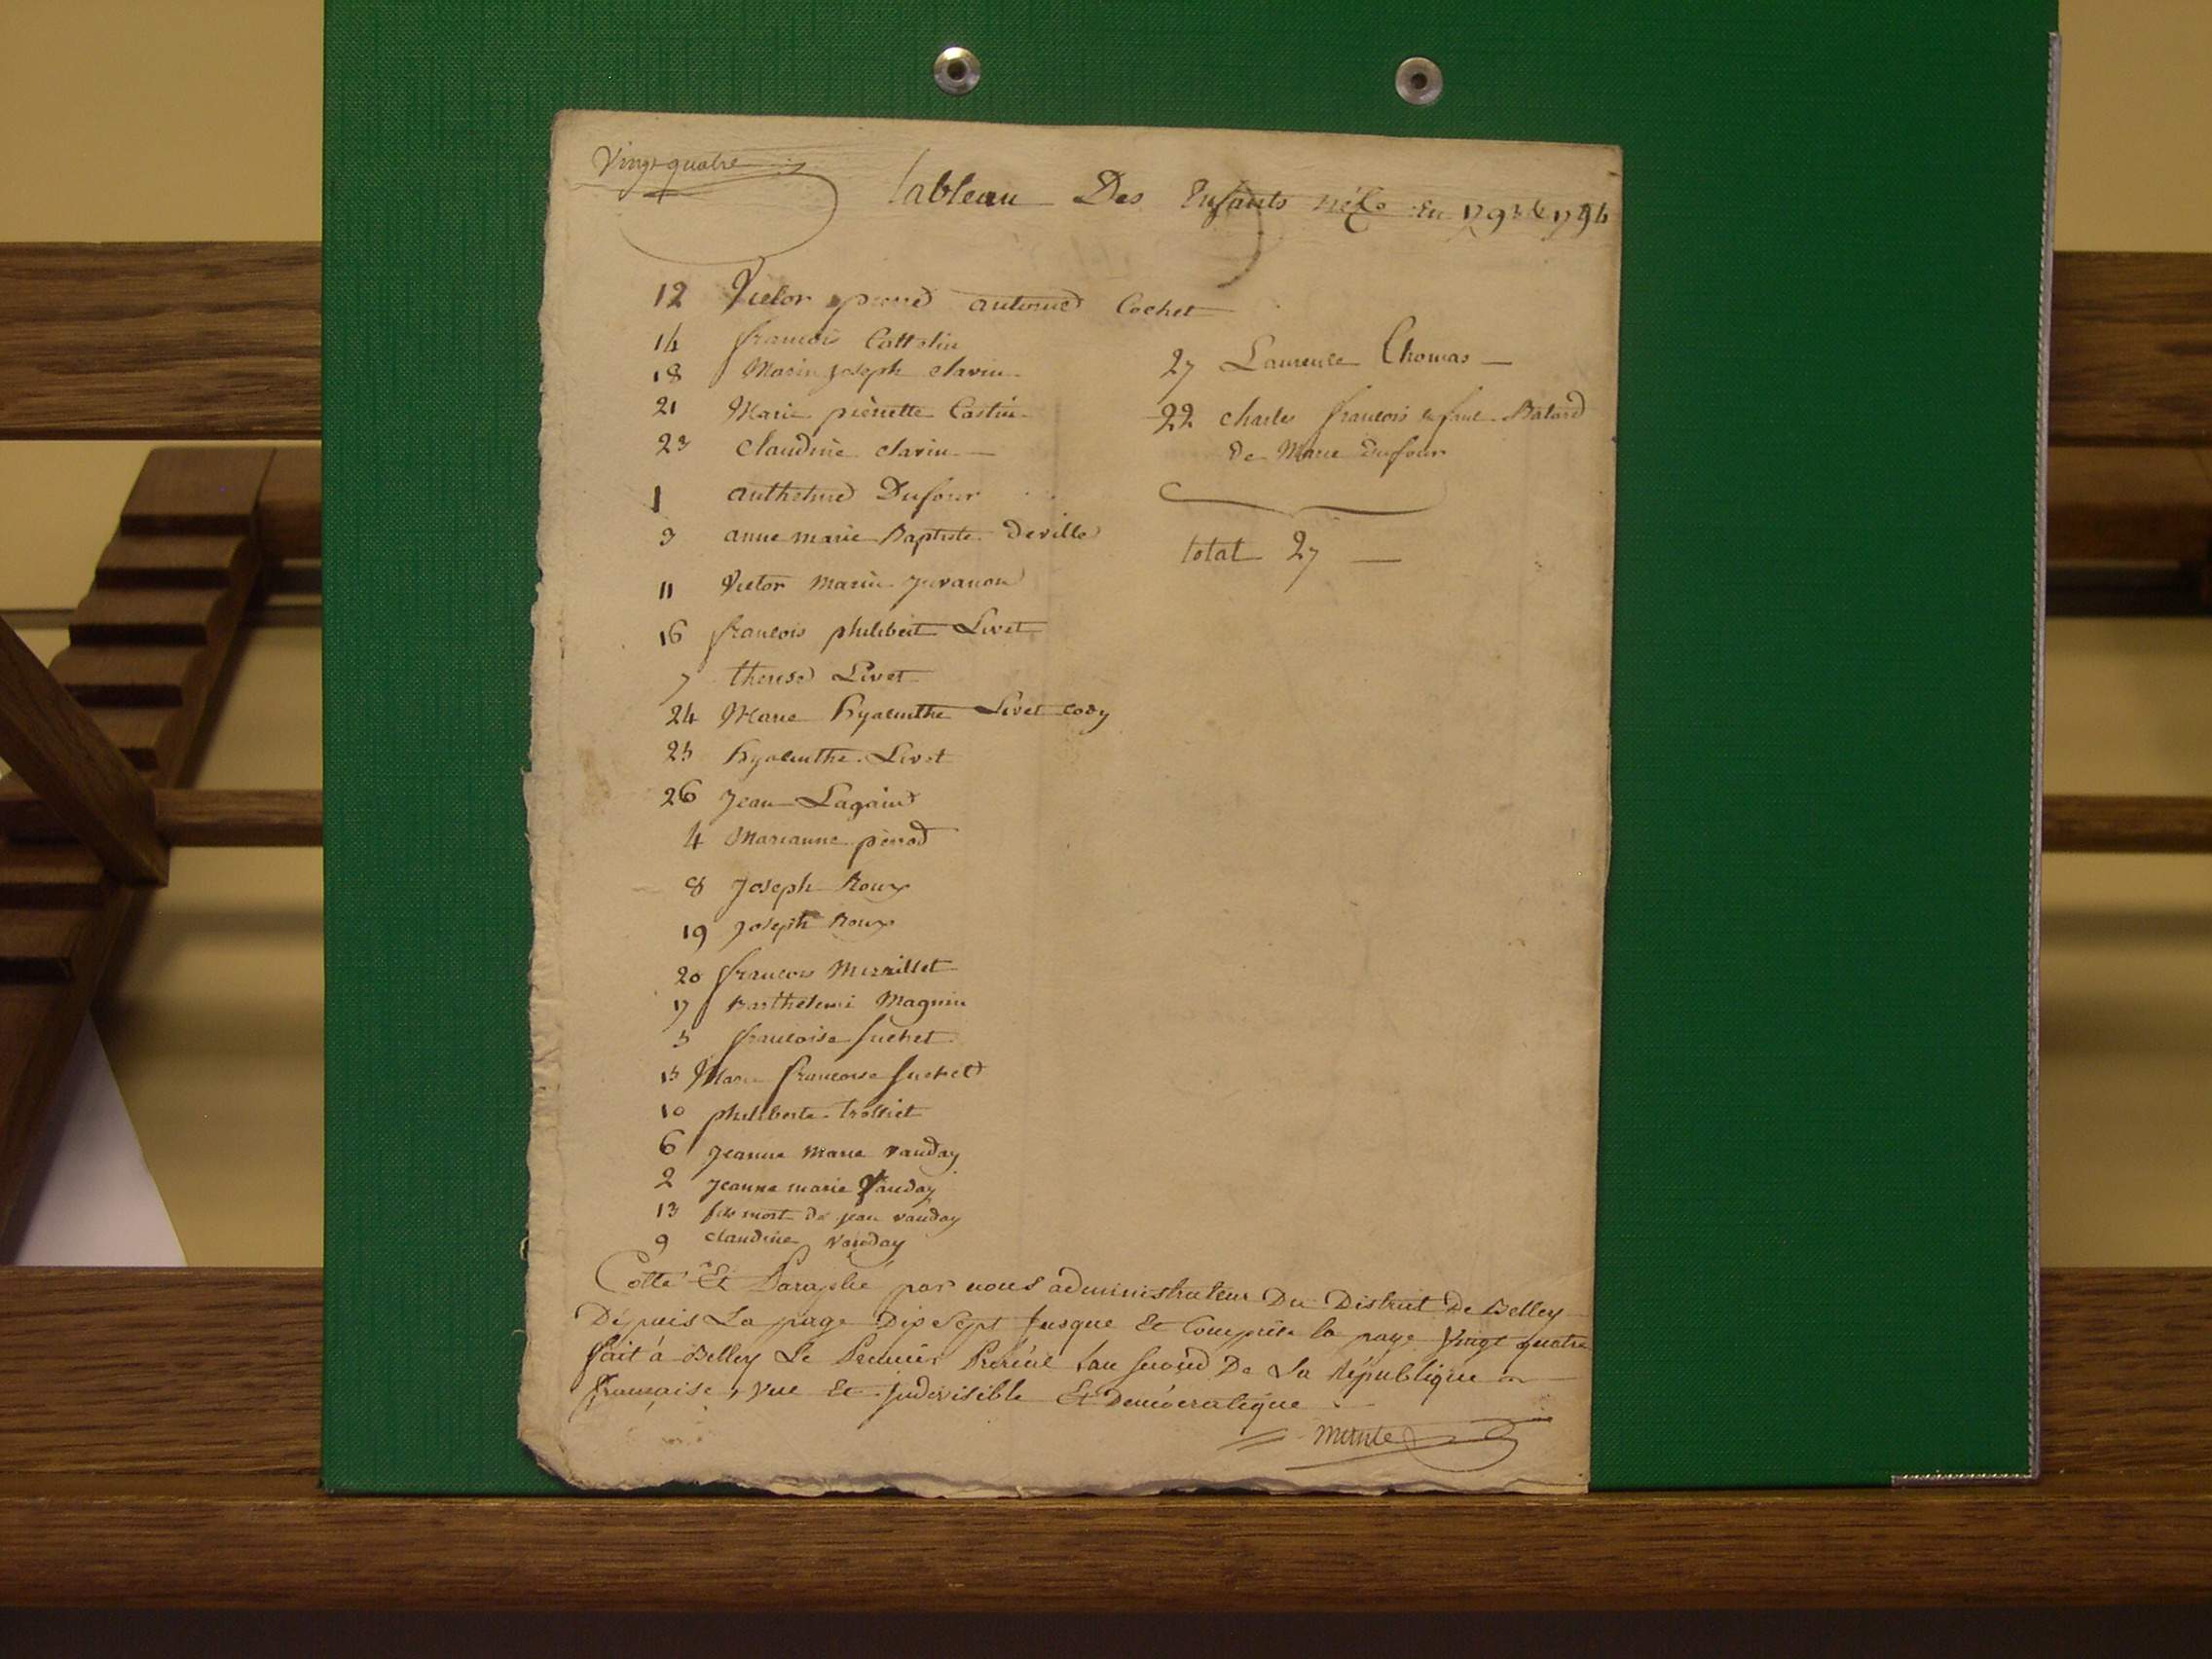 Vingt quatre
tableau Des Enfants nées En 1793 & 1794
12 Victor pierre antoine Cochet
14 francois Cattelin
18 Marie Joseph clavin
21 Marie pierrette Castin
23 Claudine clavin
1 anthelme Dufour
3 anne marie Baptiste deville
11 Victor Marin
16 francois philibert Livet
7 therese Livet
24 Marie hyacinthe Livet cody
25 hyacinthe Livet
26 Jean Lagaine
4 Marianne perrod
8 Joseph Roux
19 Joseph Roux
20 francois Mermillet
17 Barthelemi Magnin
5 francoise suchet
15 Marie francoise suchet
10 philiberte trolliet
6 Jeanne Marie vauday
2 Jeanne marie Vauday
13 fils mort de jean vauday
9 claudine vauday
27 Laurence Thomas
22 charles francois enfant Batard
de Marie dufour
total 27
Cotté Et Paraphé par nous administrateur Du District De Belley
Depuis La page Dix Sept Jusque Et Comprise la page Vingt quatre
fait à Belley Le Premier Prerial l'an second De La République
francaise, vne Et Indivisible Et Democratique